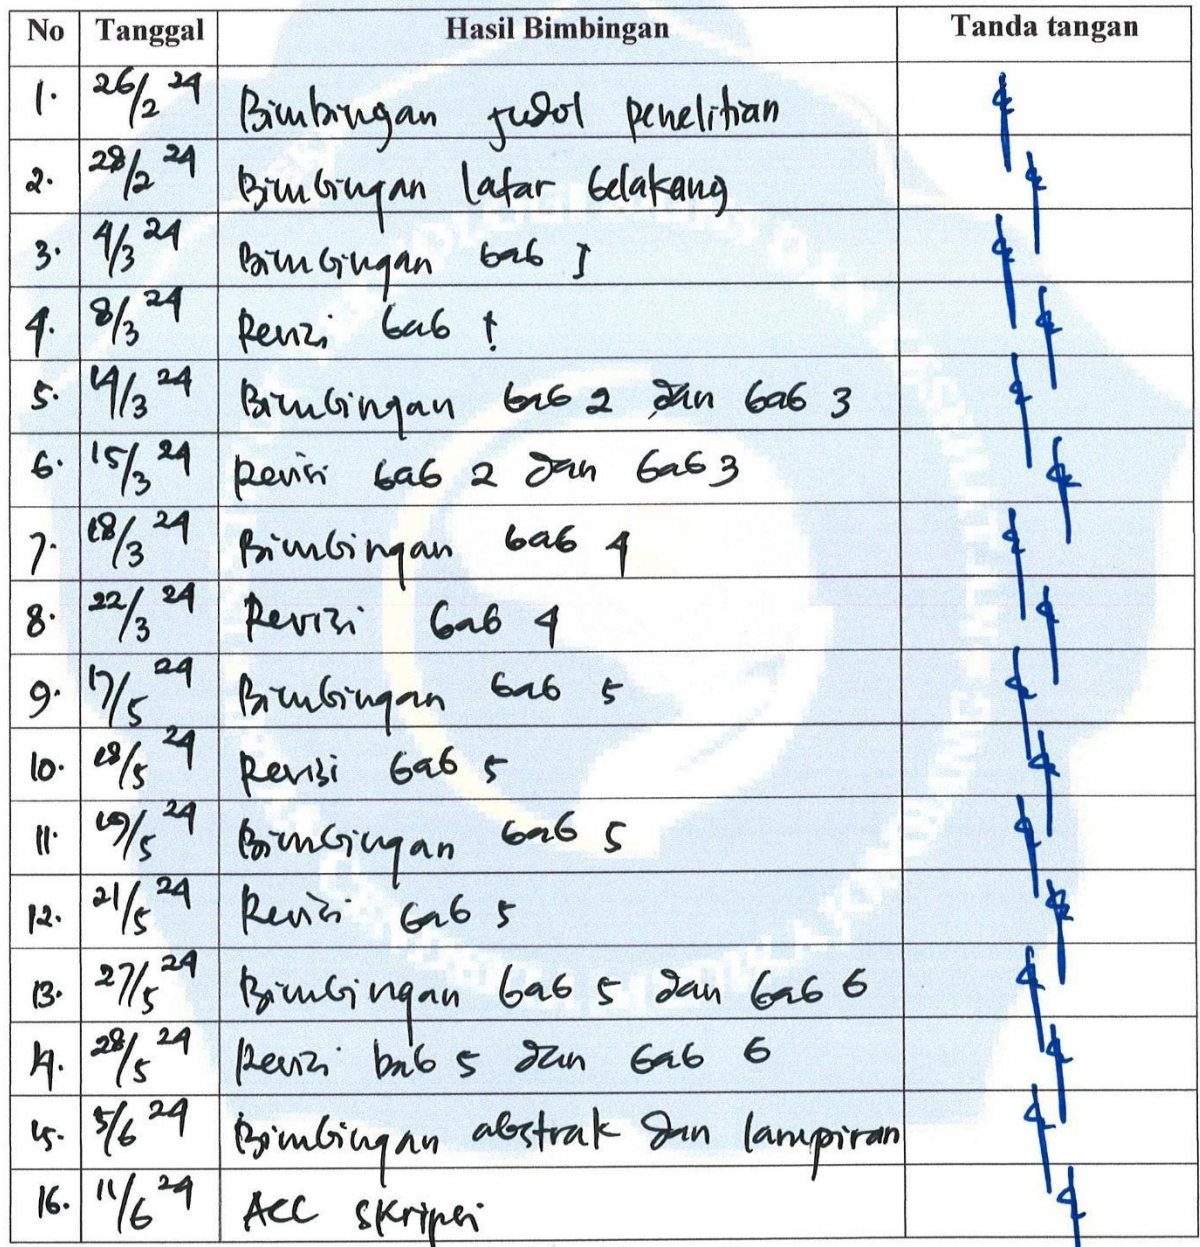 No Tanggal Hasil Bimbingan Tanda tangan
1. 26/2 24 Bimbingan judol penelitian
2. 28/2 24 Bimbingan latar belakang
3. 4/3 24 Bimbingan bab I
4. 8/3 24 Revizi bab 1
5. 14/3 24 Bimbingan bab 2 dan bab 3
6. 15/3 24 Revisi bab 2 dan bab 3
7. 18/3 24 Bimbingan bab 4
8. 22/3 24 Revizi bab 4
9. 17/5 24 Bimbingan bab 5
10. 18/5 24 Revisi bab 5
11. 19/5 24 Bimbingan bab 5
12. 21/5 24 Revisi bab 5
13. 27/5 24 Bimbingan bab 5 dan bab 6
14. 28/5 24 Revizi bab 5 dan bab 6
15. 5/6 24 Bimbingan abstrak dan lampiran
16. 11/6 24 ACC skripsi